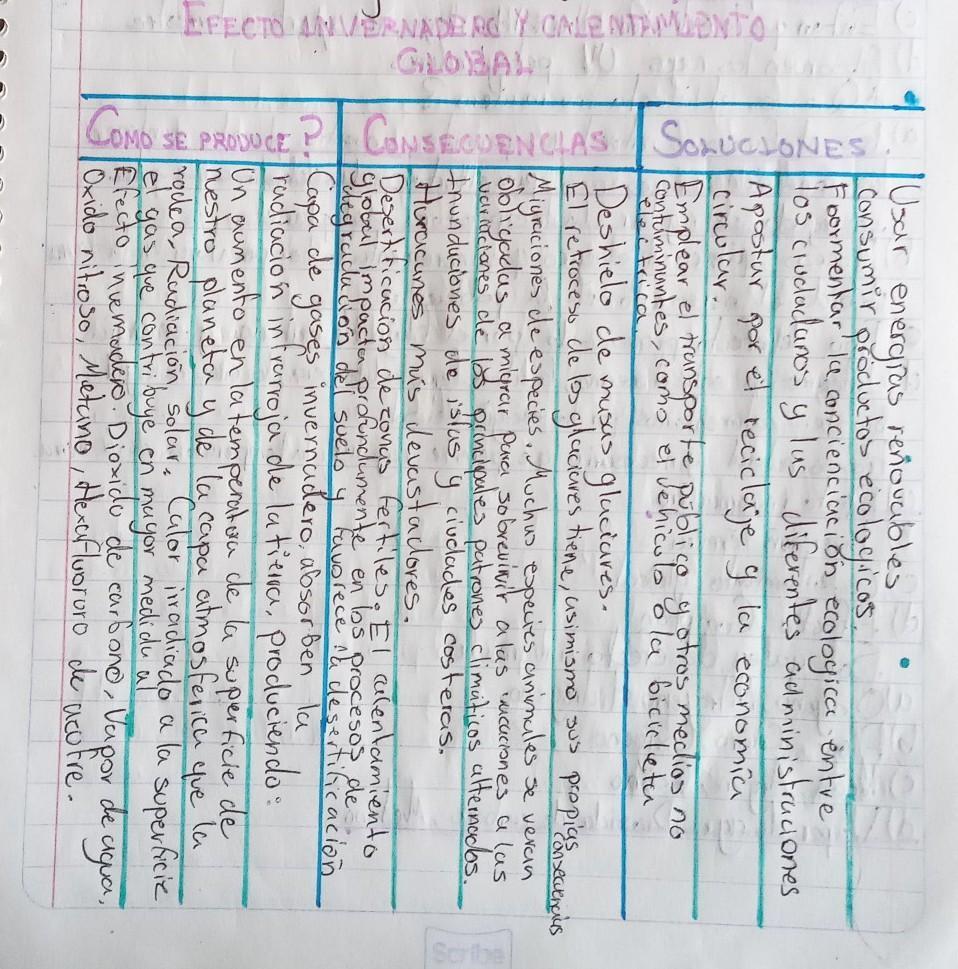 EFECTO INVERNADERO Y CALENTAMIENTO
GLOBAL
COMO SE PRODUCE?
Capa de gases invernadero, absorben la
radiación infrarroja de la tierra, produciendo:
Un aumento en la temperatura de la superficie de
nestro planeta y de la capa atmosferica que la
rodea, Radiación solar, Calor irradiado a la superficie
el gas que contribuye en mayor medida al
Efecto invernadero. Dioxido de carbono, Vapor de agua,
Oxido nitroso, Metano, Hexafluoruro de azofre.
CONSECUENCIAS
Deshielo de masas glaciares.
El retroceso de los glaciares tiene, asimismo sus propias
consecuencias
Migraciones de especies. Muchas especies animales se veran
obligadas a migrar para sobrevivir a las
variaciones de los principales patrones climáticos alternados.
Inundaciones de islas y ciudades costeras.
Huracanes más devastadores.
Desertificación de zonas fertiles. El calentamiento
global impacta profundamente en los procesos de
degradación del suelo y favorece la desertificación
SOLUCIONES
Usar energias renovables
consumir productos ecologicos.
Foomentar la concienciación ecologica entre
los ciudadanos y las diferentes administraciones
Apostar por el reciclaje y la economía
circular.
Emplear el transporte público y otros medios no
contaminantes, como el vehículo o la bicicleta
electrica
Scribe